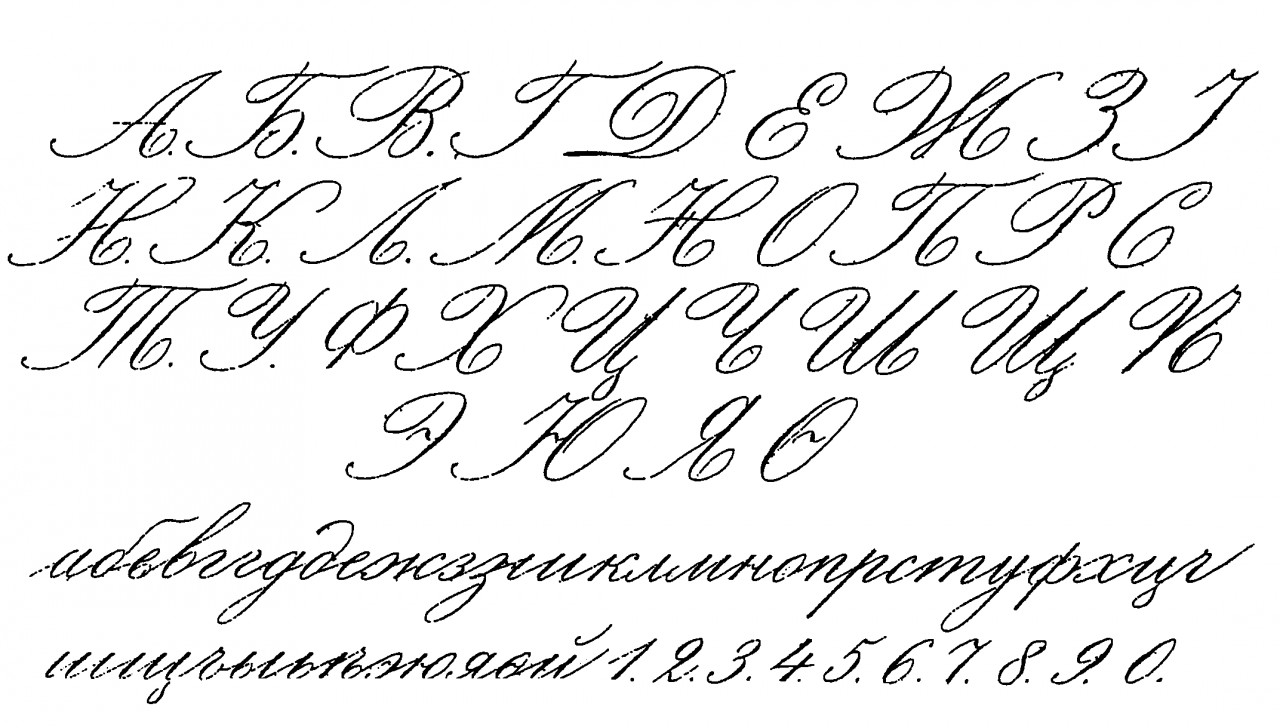 А. Б. В. Г Д Е Ж З І
И. К. Л. М. Н О П Р С
Т. У. Ф Х Ц Ч Ш Щ Ѣ
Э Ю Я Ѳ
абввггддежззиклмнопрстуфхцч
шщъыьѣэю.яѳй 1. 2. 3. 4. 5. 6. 7. 8. 9. 0.